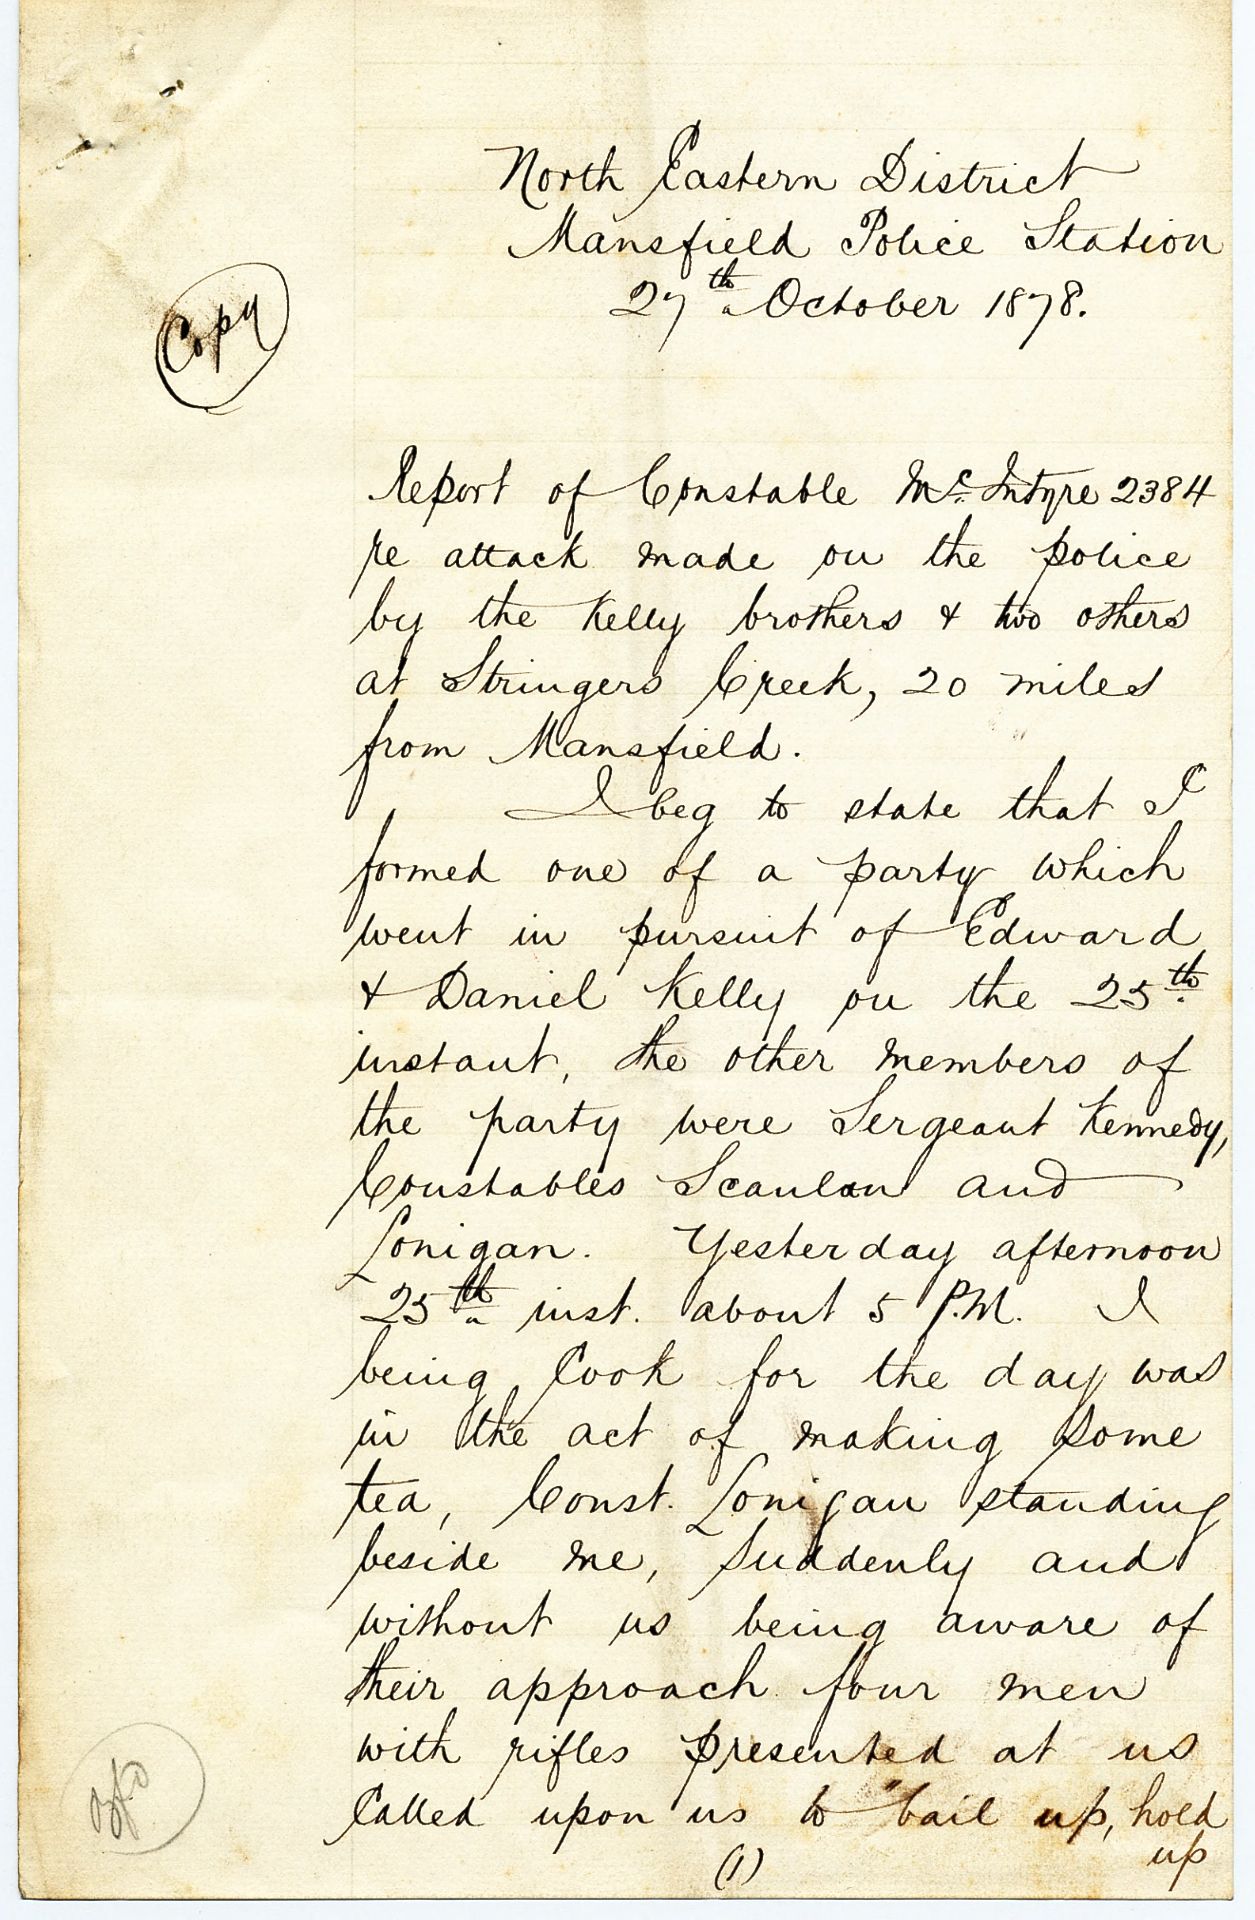 North Eastern District
Mansfield Police Station
27th October 1878.
Copy
Report of Constable McIntyre 2384
re attack made on the police
by the Kelly brothers & two others
at Stringers Creek, 20 miles
from Mansfield.
I beg to state that I
formed one of a party which
went in pursuit of Edward
& Daniel Kelly on the 25th
instant, the other members of
the party were Sergeant Kennedy,
Constables Scanlan and
Lonigan. Yesterday afternoon
25th inst. about 5 P.M. I
being Cook for the day was
in the act of making some
tea, Const. Lonigan standing
beside me, Suddenly and
without us being aware of
their approach four men
with rifles presented at us
Called upon us to "bail up, hold
up
(1)